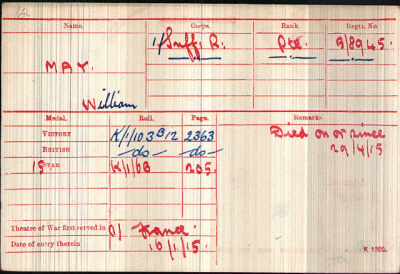 Name. Corps. Rank. Regtl. No.
1/Suff. R. Pte. 3/8945.
MAY.
William
Medal. Roll. Page. Remarks.
VICTORY K/1/103B12 2363 Died on or since
BRITISH —do— —do— 29/4/15
15 STAR K/1/6B 205.
Theatre of War first served in (1) France
Date of entry therein 16/1/15.
K 1380.